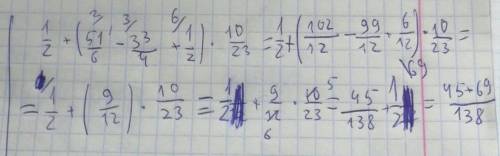 1/2 + (51/6 - 33/4 + 1/2) · 10/23 = 1/2 + (102/12 - 99/12 + 6/12) · 10/23 =
= 1/2 + (9/12) · 10/23 = 1/2 + 9/12 · 10/23 = 45/138 + 1/2 = 45+69/138